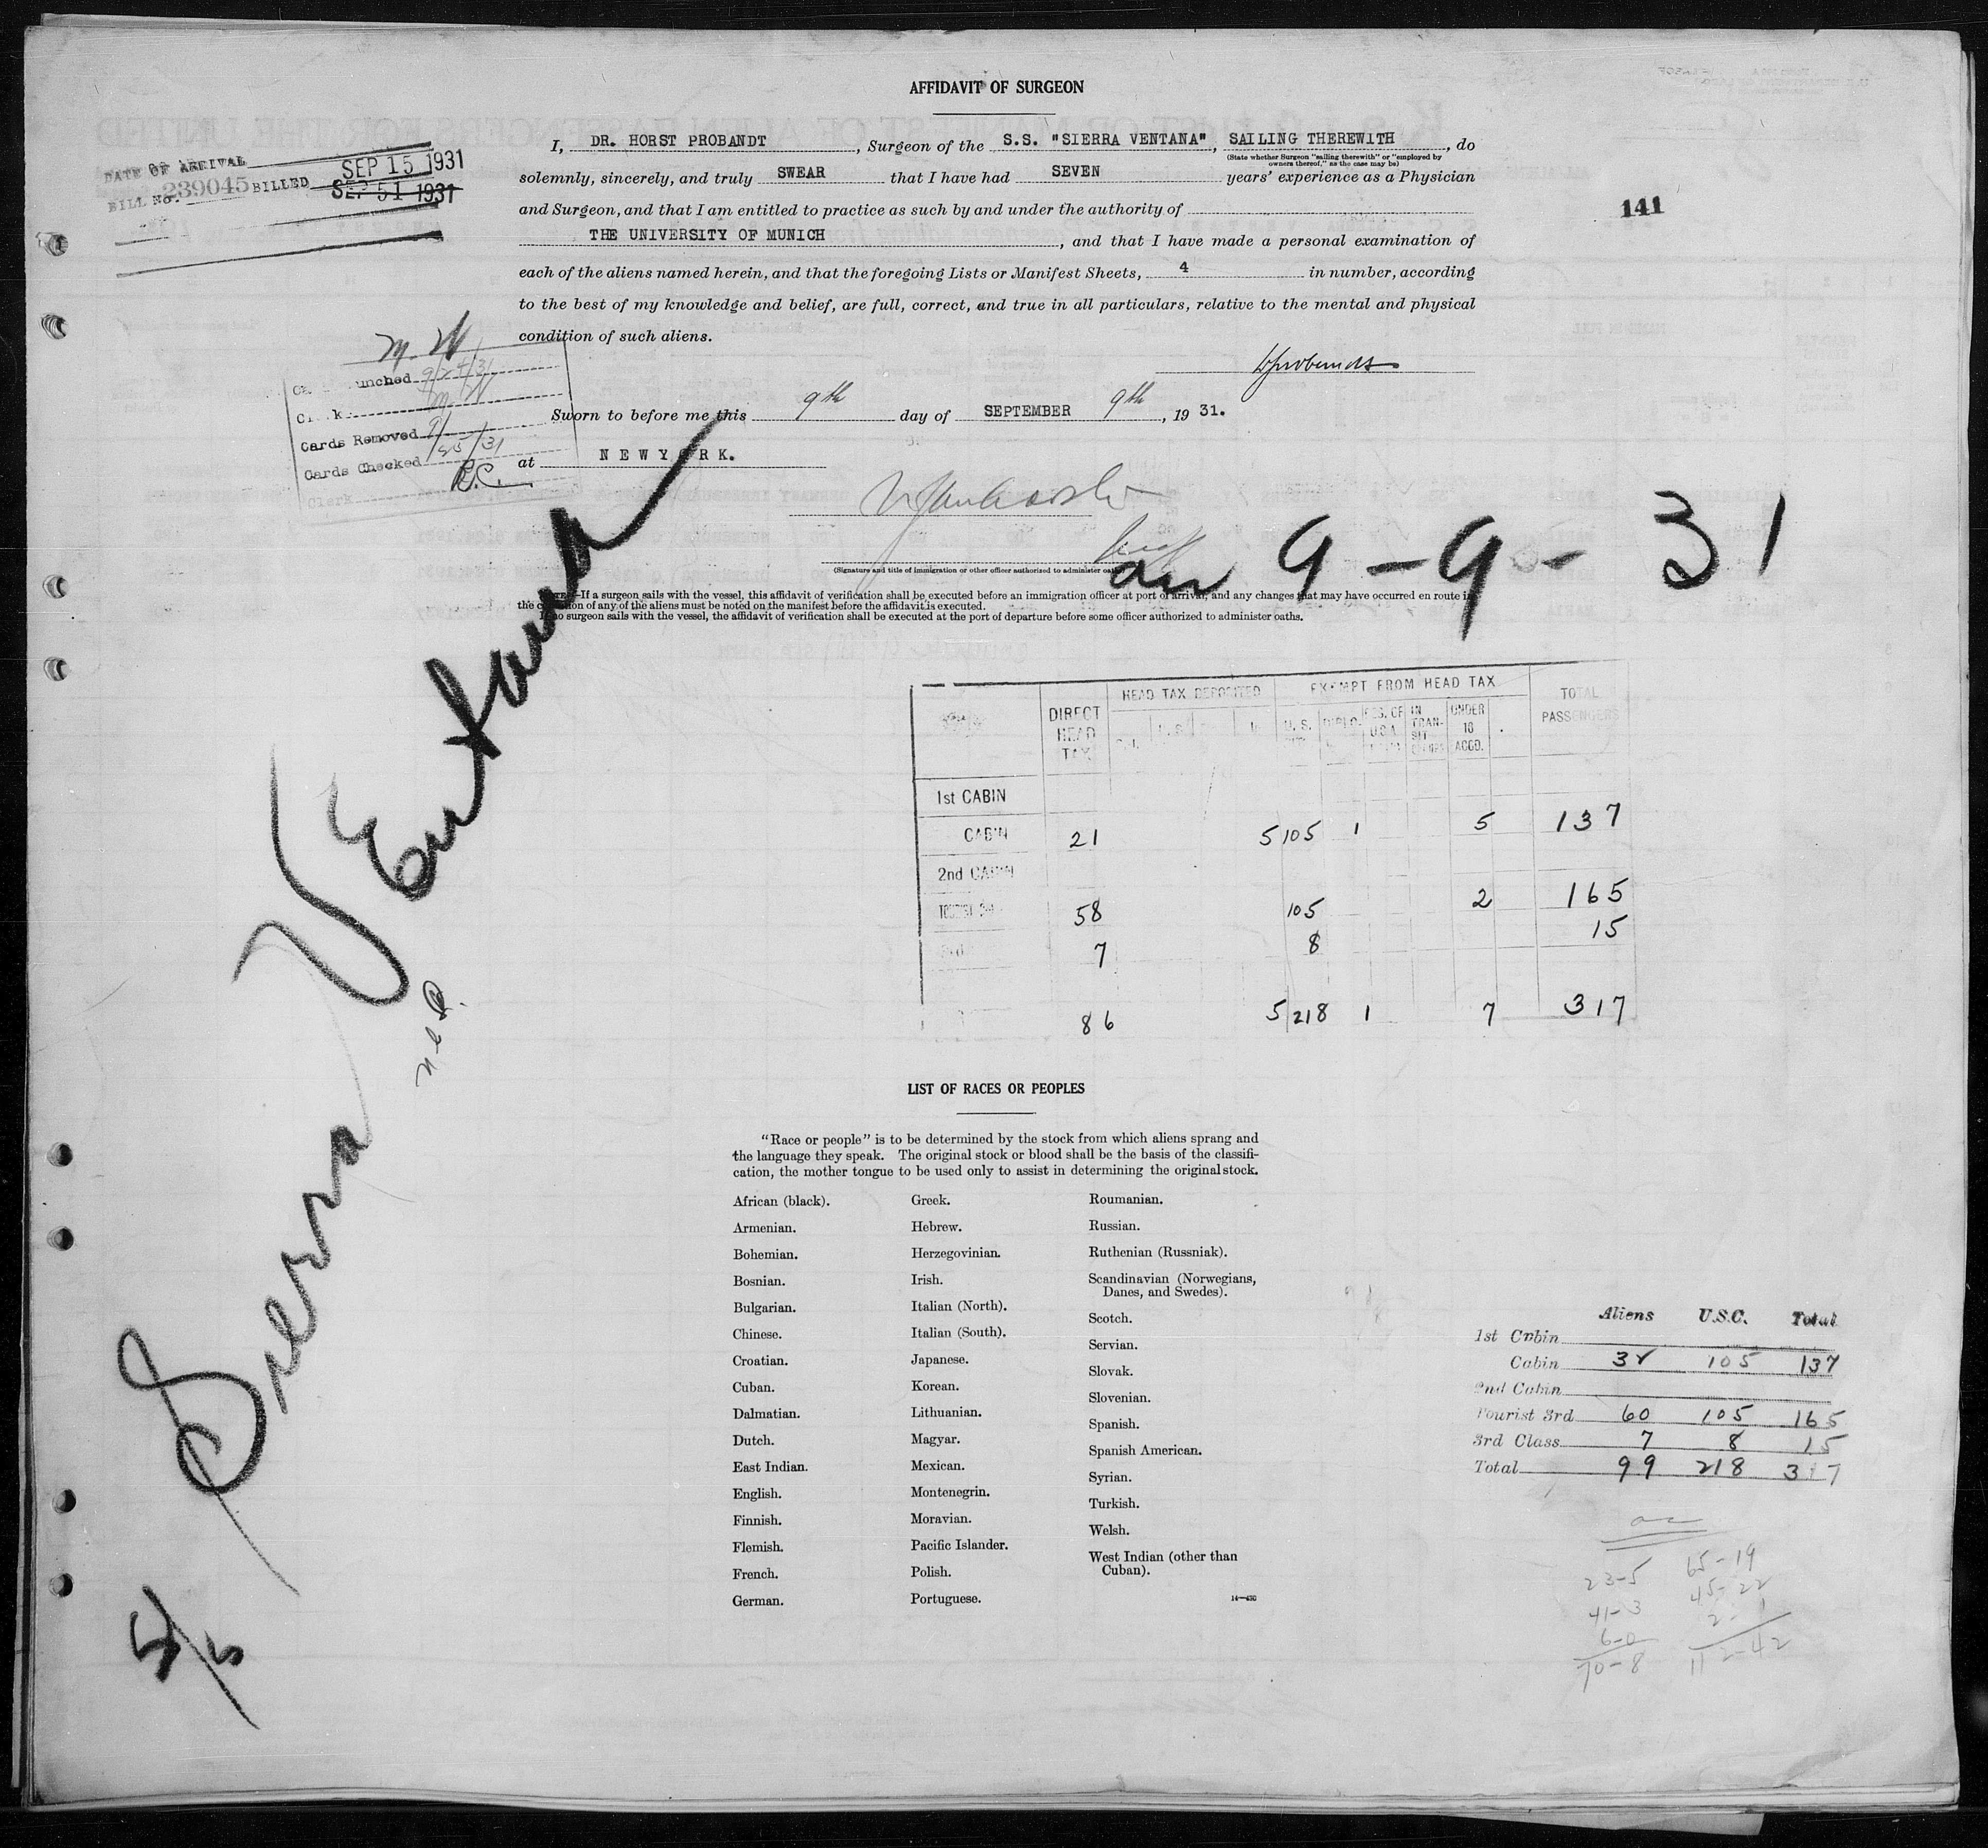 AFFIDAVIT OF SURGEON
I, DR. HORST PROBANDT, Surgeon of the S.S. "SIERRA VENTANA", SAILING THEREWITH, do
(State whether Surgeon "sailing therewith" or "employed by
owners thereof," as the case may be)
solemnly, sincerely, and truly SWEAR that I have had SEVEN years' experience as a Physician
and Surgeon, and that I am entitled to practice as such by and under the authority of
THE UNIVERSITY OF MUNICH, and that I have made a personal examination of
each of the aliens named herein, and that the foregoing Lists or Manifest Sheets, 4 in number, according
to the best of my knowledge and belief, are full, correct, and true in all particulars, relative to the mental and physical
condition of such aliens.
DATE OF ARRIVAL SEP 15 1931
BILL No. 239045 BILLED SEP 51 1931
141
M. W
unched 9/24/31
M. W
Cards Removed 9/
Cards Checked 25/31
Clerk R.C.
Sworn to before me this 9th day of SEPTEMBER 9th, 19 31.
at N E W Y RK.
(Signature and title of immigration or other officer authorized to administer oath)
9-9-31
NOTE.—If a surgeon sails with the vessel, this affidavit of verification shall be executed before an immigration officer at port of arrival, and any changes that may have occurred en route in
the condition of any of the aliens must be noted on the manifest before the affidavit is executed.
If no surgeon sails with the vessel, the affidavit of verification shall be executed at the port of departure before some officer authorized to administer oaths.
Sierra Ventana
5/5
DIRECT HEAD TAX HEAD TAX DEPOSITED EXEMPT FROM HEAD TAX TOTAL PASSENGERS
U.S. DIPLO. RES. OF U.S.A. IN TRANSIT UNDER 16 ACCD.
1st CABIN
CABIN 21 5 105 1 5 137
2nd CABIN
TOURIST 3rd 58 105 2 165
3rd 7 8 15
86 5 218 1 7 317
LIST OF RACES OR PEOPLES
"Race or people" is to be determined by the stock from which aliens sprang and
the language they speak. The original stock or blood shall be the basis of the classifi-
cation, the mother tongue to be used only to assist in determining the original stock.
African (black).
Armenian.
Bohemian.
Bosnian.
Bulgarian.
Chinese.
Croatian.
Cuban.
Dalmatian.
Dutch.
East Indian.
English.
Finnish.
Flemish.
French.
German.
Greek.
Hebrew.
Herzegovinian.
Irish.
Italian (North).
Italian (South).
Japanese.
Korean.
Lithuanian.
Magyar.
Mexican.
Montenegrin.
Moravian.
Pacific Islander.
Polish.
Portuguese.
Roumanian.
Russian.
Ruthenian (Russniak).
Scandinavian (Norwegians,
Danes, and Swedes).
Scotch.
Servian.
Slovak.
Slovenian.
Spanish.
Spanish American.
Syrian.
Turkish.
Welsh.
West Indian (other than
Cuban).
14—430
Aliens U.S.C. Total
1st Cabin
Cabin 32 105 137
2nd Cabin
Tourist 3rd 60 105 165
3rd Class 7 8 15
Total 99 218 317
23-5 65-19
41-3 45-22
6-0 2-1
70-8 112-42